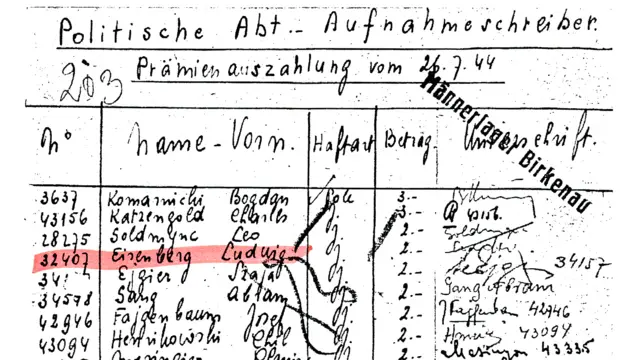 Politische Abt. - Aufnahmeschreiber.
203 Prämienauszahlung vom 26.7.44
Männerlager Birkenau
No Name - Vorn. Haftart Betrag. Unterschrift.
3637 Komarnicki Bogdan Pole 3.-
43156 Katzengold Charles j. 3.- 43156.
28275 Soldmync Leo j. 2.-
32407 Eisenberg Ludwig j. 2.-
Eygier Szaja j. 2.- 34157
34578 Sang Abram dj. 2.- Sang Abram
42946 Fajgenbaum Josef dj. 2.- 42946
43094 Henrikowski dj. 2.- 43094
2.- 43335